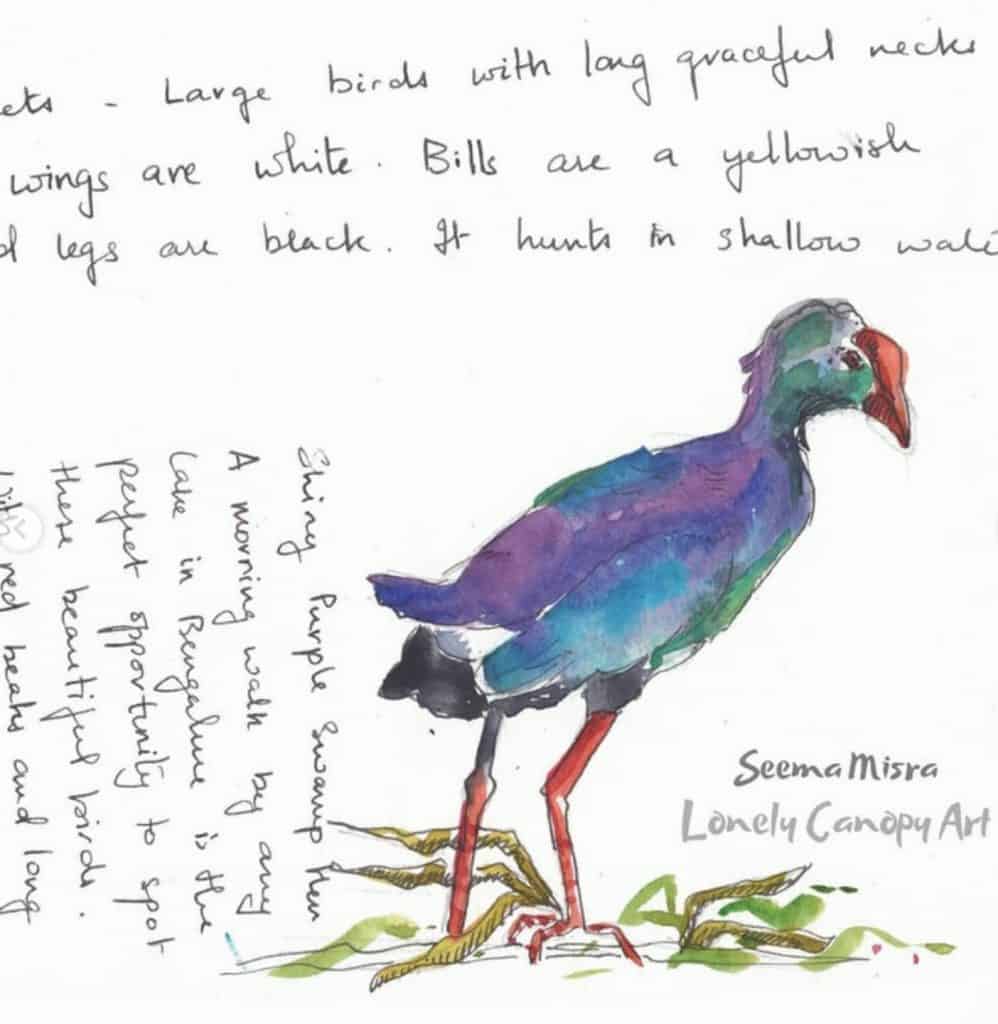 ets - Large birds with long graceful necks
wings are white. Bills are a yellowish
d legs are black. It hunts in shallow wate
Shiny Purple Swamp Hen
A morning walk by any
Lake in Bengaluru is the
perfect opportunity to spot
these beautiful birds.
With red beaks and long
Seema Misra
Lonely Canopy Art